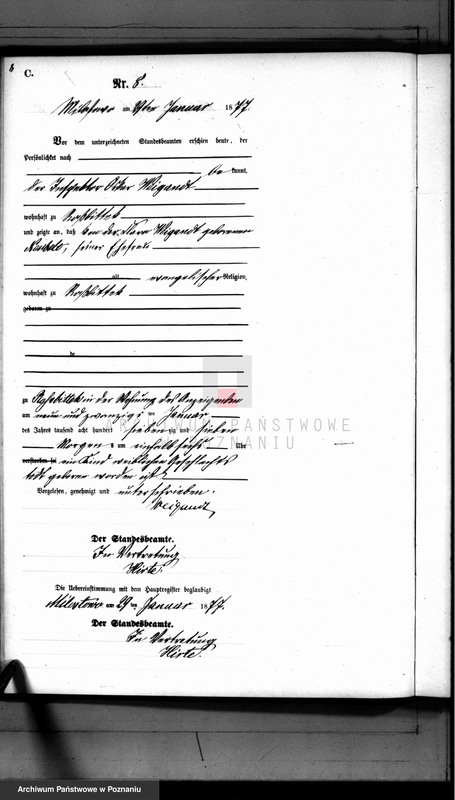 8
C.
Nr. 8.
Milostowo am 29ten Januar 1877.
Vor dem unterzeichneten Standesbeamten erschien heute, der
Persönlichkeit nach
be kannt,
der Inspektor Weigandt
wohnhaft zu
und zeigte an, daß von der Weigandt geborenen
seiner Ehefrau
alt evangelischer Religion,
wohnhaft zu
geboren zu
de
zu in der Wohnung des Anzeigenden
am neun und zwanzigsten Januar
des Jahres tausend acht hundert siebenzig und sieben
Morgens um einhalb sechs Uhr
verstorben sei ein Kind weiblichen Geschlechts
todt geboren worden ist.
Vorgelesen, genehmigt und unterschrieben.
Weigandt
Der Standesbeamte.
In Vertretung
Hirte.
Die Uebereinstimmung mit dem Hauptregister beglaubigt
Milostowo am 29 ten Januar 1877.
Der Standesbeamte.
In Vertretung
Hirte.
ARCHIWUM PAŃSTWOWE
W POZNANIU
Archiwum Państwowe w Poznaniu